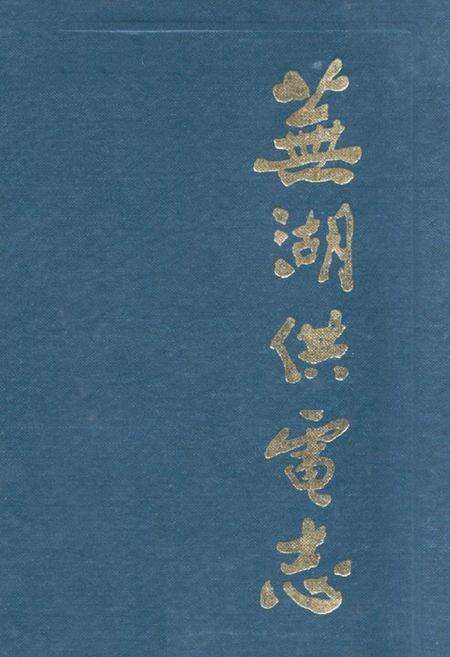 蕪湖供電志